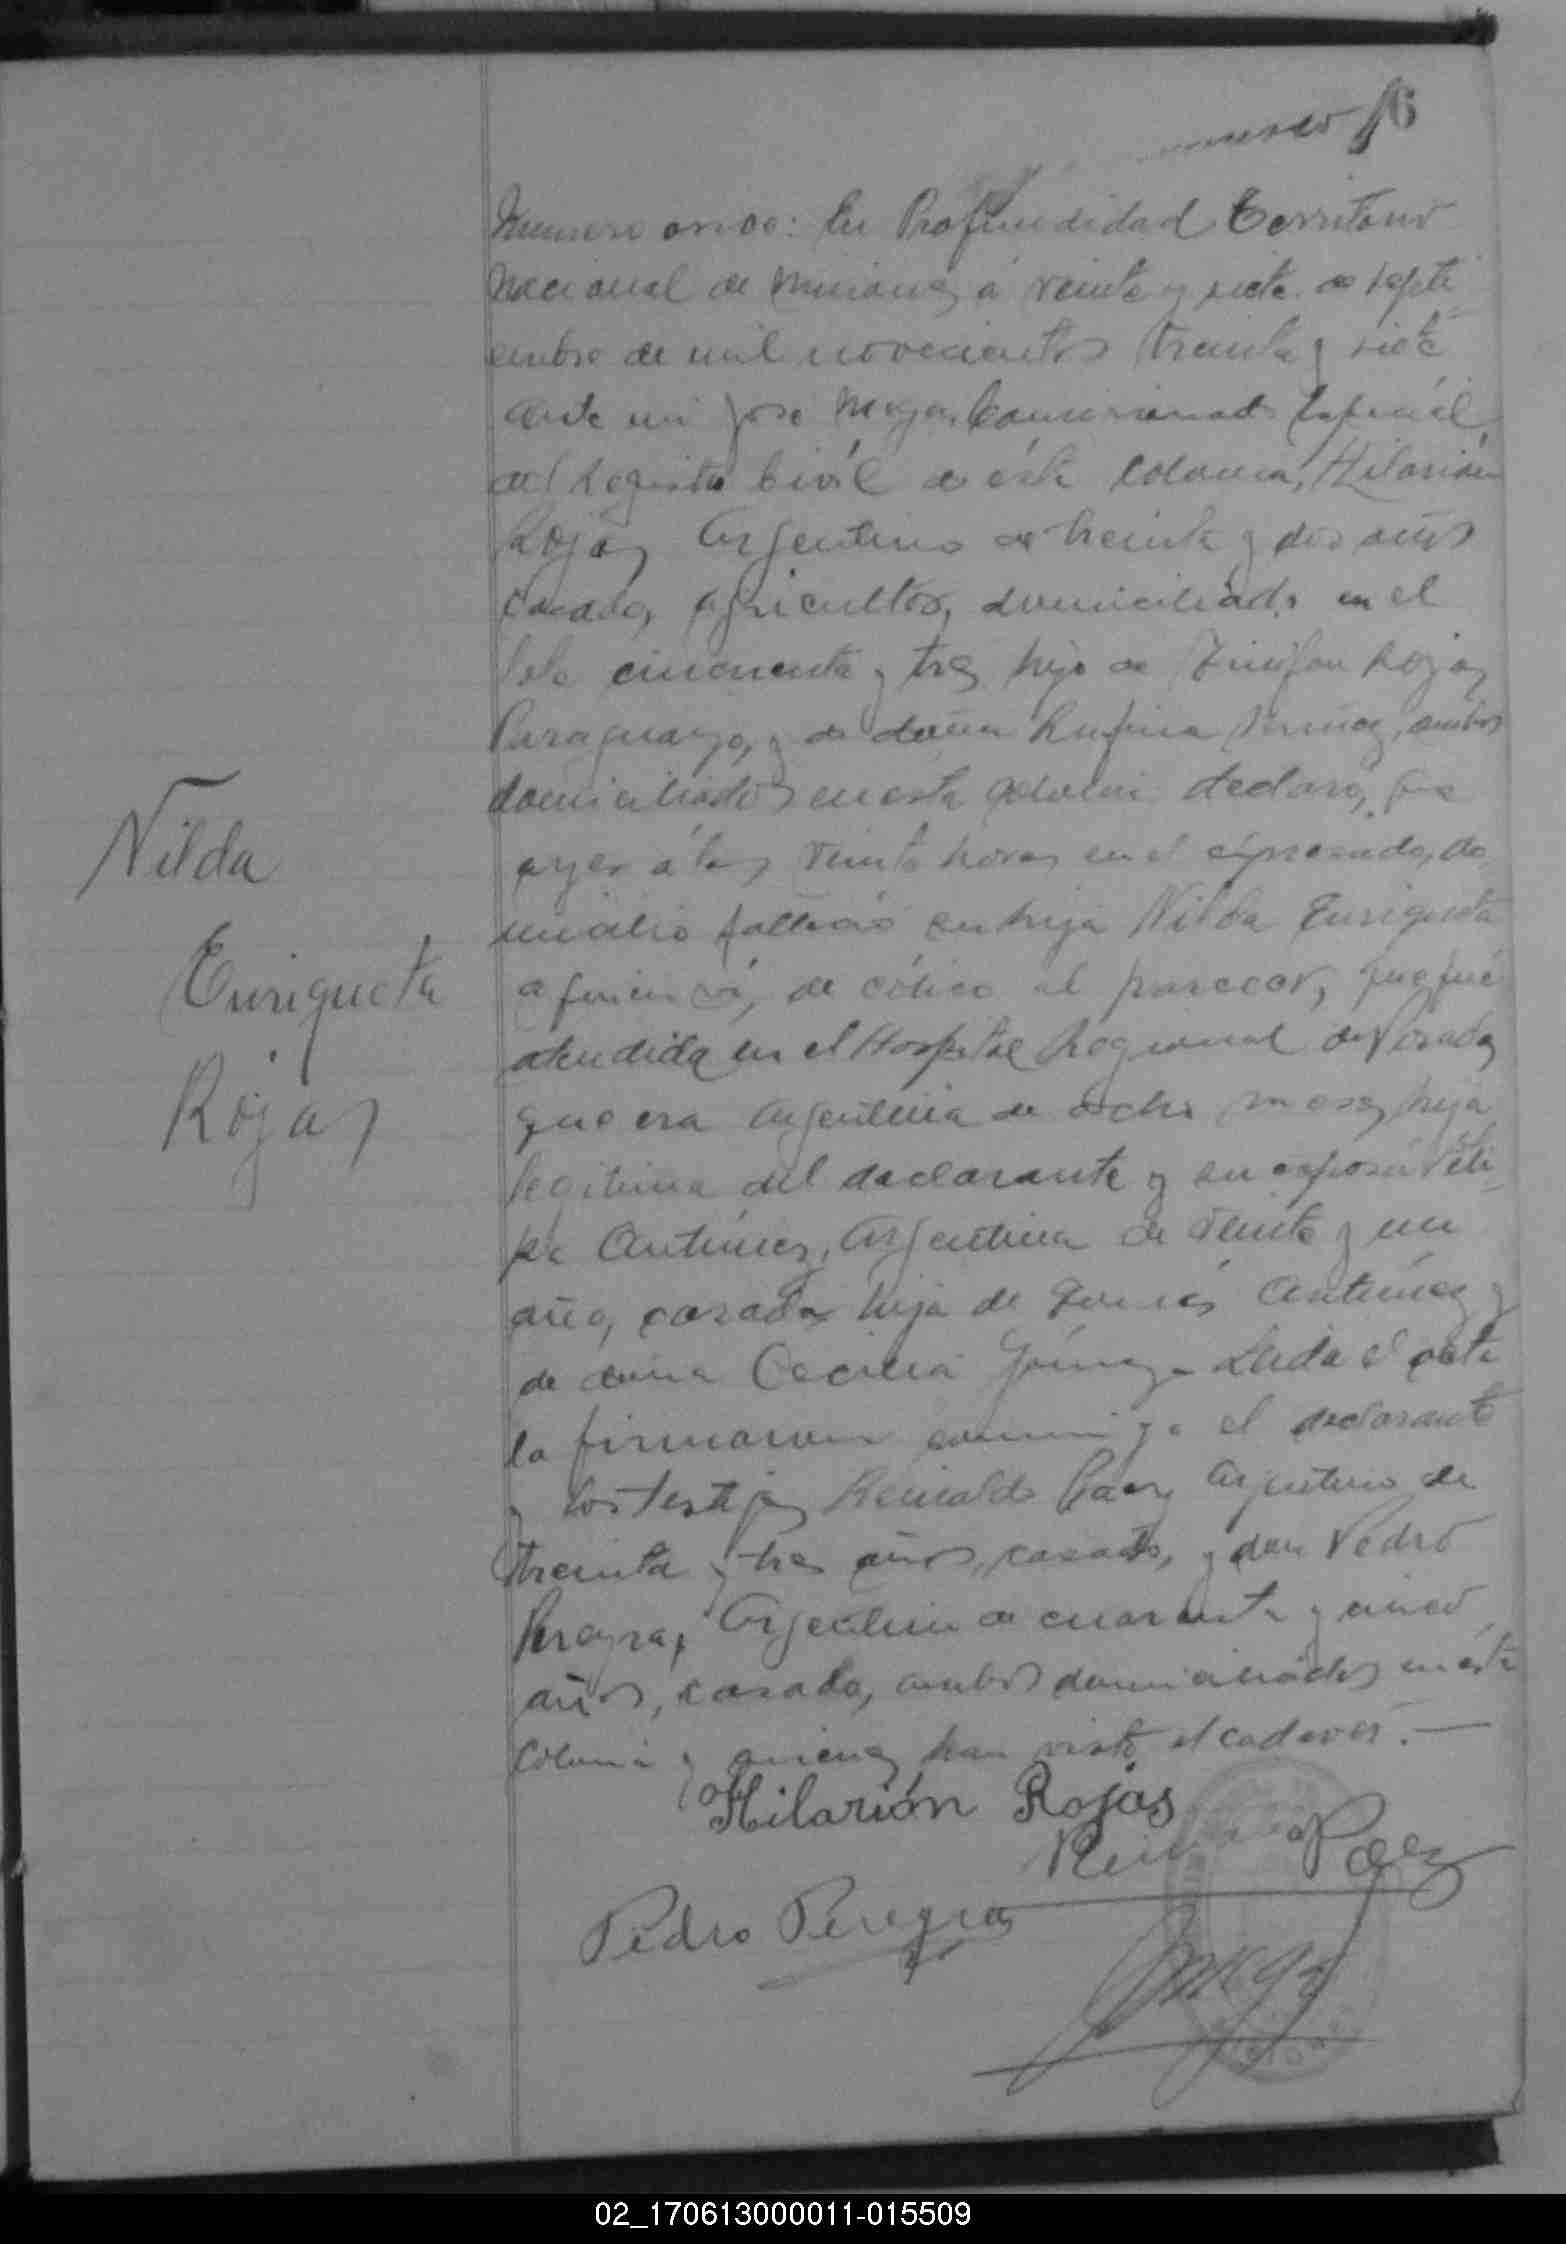 16
Numero once: En Profundidad Territorio
Nacional de Misiones á veinte y siete de Septi
embre de mil novecientos treinta y siete
ante mi José Comisionado Especial
del Registro Civil de ésta Colonia, Hilarión
Rojas Argentino de treinta y dos años
casado, agricultor, domiciliado en el
lote cincuenta y tres hijo de Rojas
Paraguayo, y de doña Rufina ambos
domiciliados en esta colonia declaró, que
ayer á las veinte horas en el expresado do
micilio falleció su hija Nilda Enriqueta
de cólico al parecer, que fué
atendida en el Hospital Regional de Posadas
que era Argentina de ocho meses hija
legitima del declarante y su esposa Feli-
pa Antúnez, Argentina de veinte y un
año, casada hija de Antúnez y
de doña Cecilia Gómez. Leida el acta
la firmaron conmigo el declarante
y los testigos Reinaldo Paez Argentino de
treinta y tres años, casado, y don Pedro
Pereyra, Argentino de cuarenta y cinco
años, casado, ambos domiciliados en ésta
Colonia y quienes han visto el cadaver.—
Nilda
Enriqueta
Rojas
Hilarión Rojas
Paez
Pedro Pereyra
02_170613000011-015509